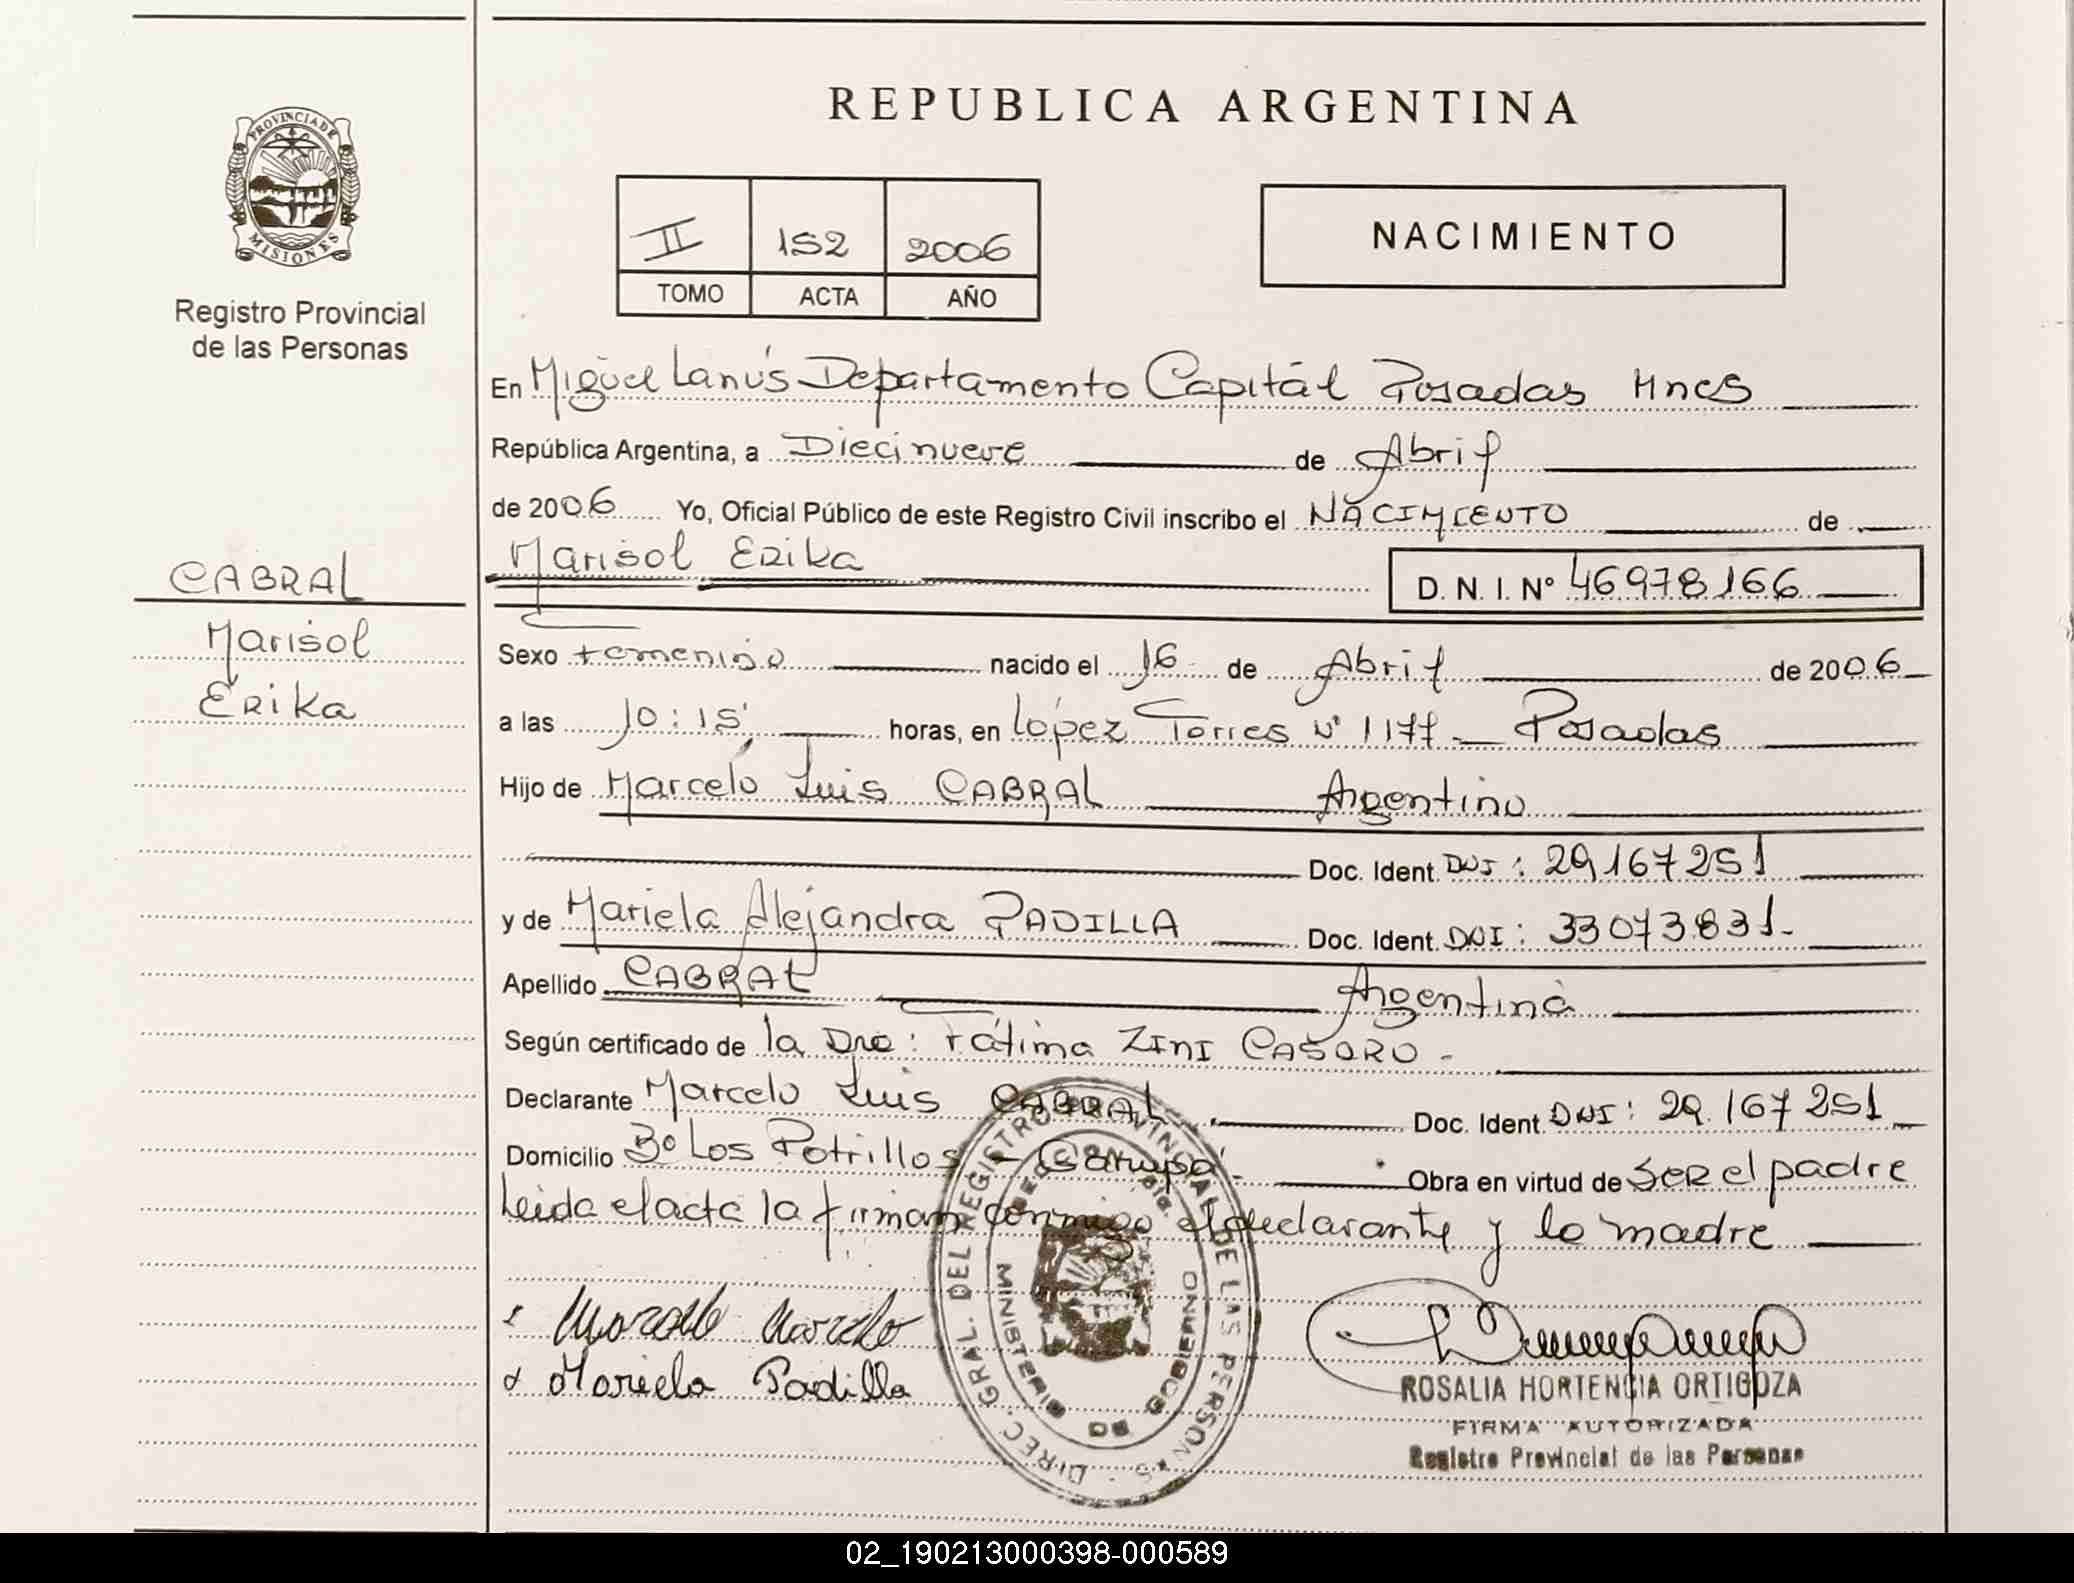 REPUBLICA ARGENTINA
PROVINCIA DE
MISIONES
Registro Provincial
de las Personas
II 152 2006
TOMO ACTA AÑO
NACIMIENTO
En Miguel Lanús Departamento Capitál Posadas Mnes
República Argentina, a Diecinueve de Abril
de 2006 Yo, Oficial Público de este Registro Civil inscribo el NACIMIENTO de
Marisol Erika D. N. I. Nº 46978166
CABRAL
Marisol
Erika
Sexo Femenino nacido el 16 de Abril de 2006
a las 10:15 horas, en López Torres Nº 1177 - Posadas
Hijo de Marcelo Luis CABRAL Argentino
Doc. Ident. DNI: 29167251
y de Mariela Alejandra PADILLA Doc. Ident. DNI: 33073831-
Apellido CABRAL Argentina
Según certificado de la Dra: Fátima ZINI CASORO -
Declarante Marcelo Luis CABRAL Doc. Ident. DNI: 29.167251
Domicilio Bo Los Potrillos - Garupá - Obra en virtud de SER el padre
Leida el acta la firman conmigo el declarante y la madre
Marcelo
Mariela Padilla
DIREC. GRAL. DEL REGISTRO PROVINCIAL DE LAS PERSONAS
MINISTERIO DE GOBIERNO
ROSALIA HORTENCIA ORTIGOZA
FIRMA AUTORIZADA
Registro Provincial de las Personas
02_190213000398-000589